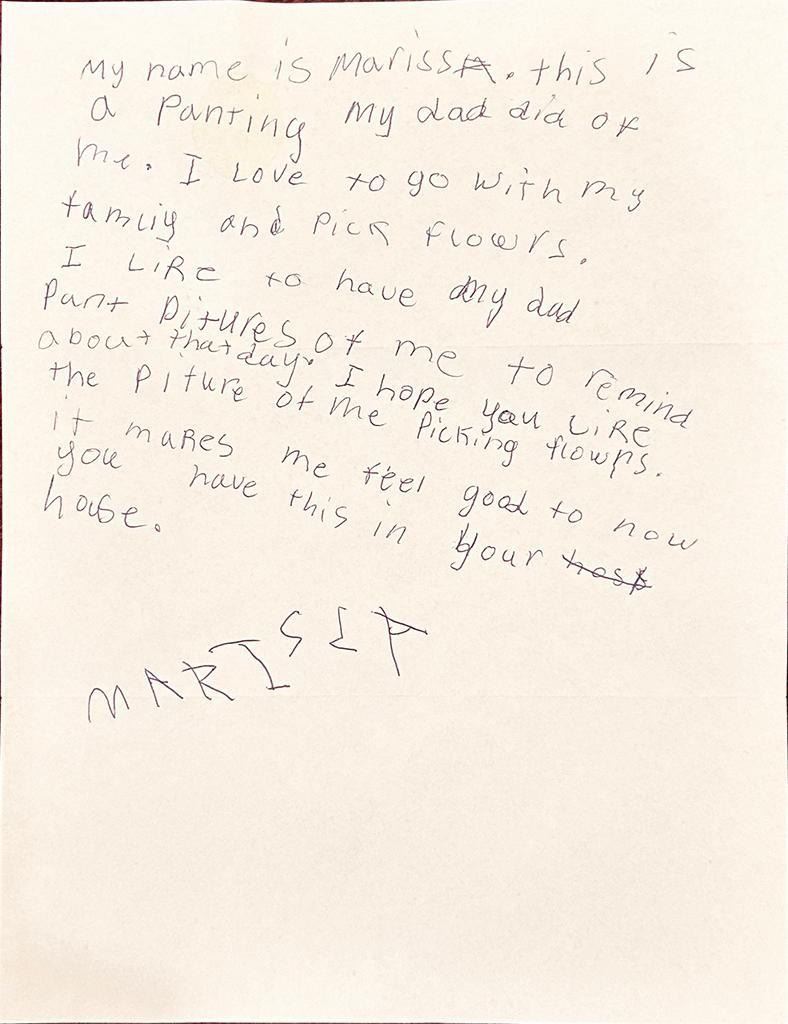 My name is Marissa. this is
a Panting My dad did of
me. I Love to go with my
famliy and Pick flowrs.
I LiRe to have My dad
Pant Pitures of me to remind
about that day. I hope you LiRe
the Piture of me Picking flowrs.
it maRes me feel good to now
you have this in your hosf
house.
MARISSA